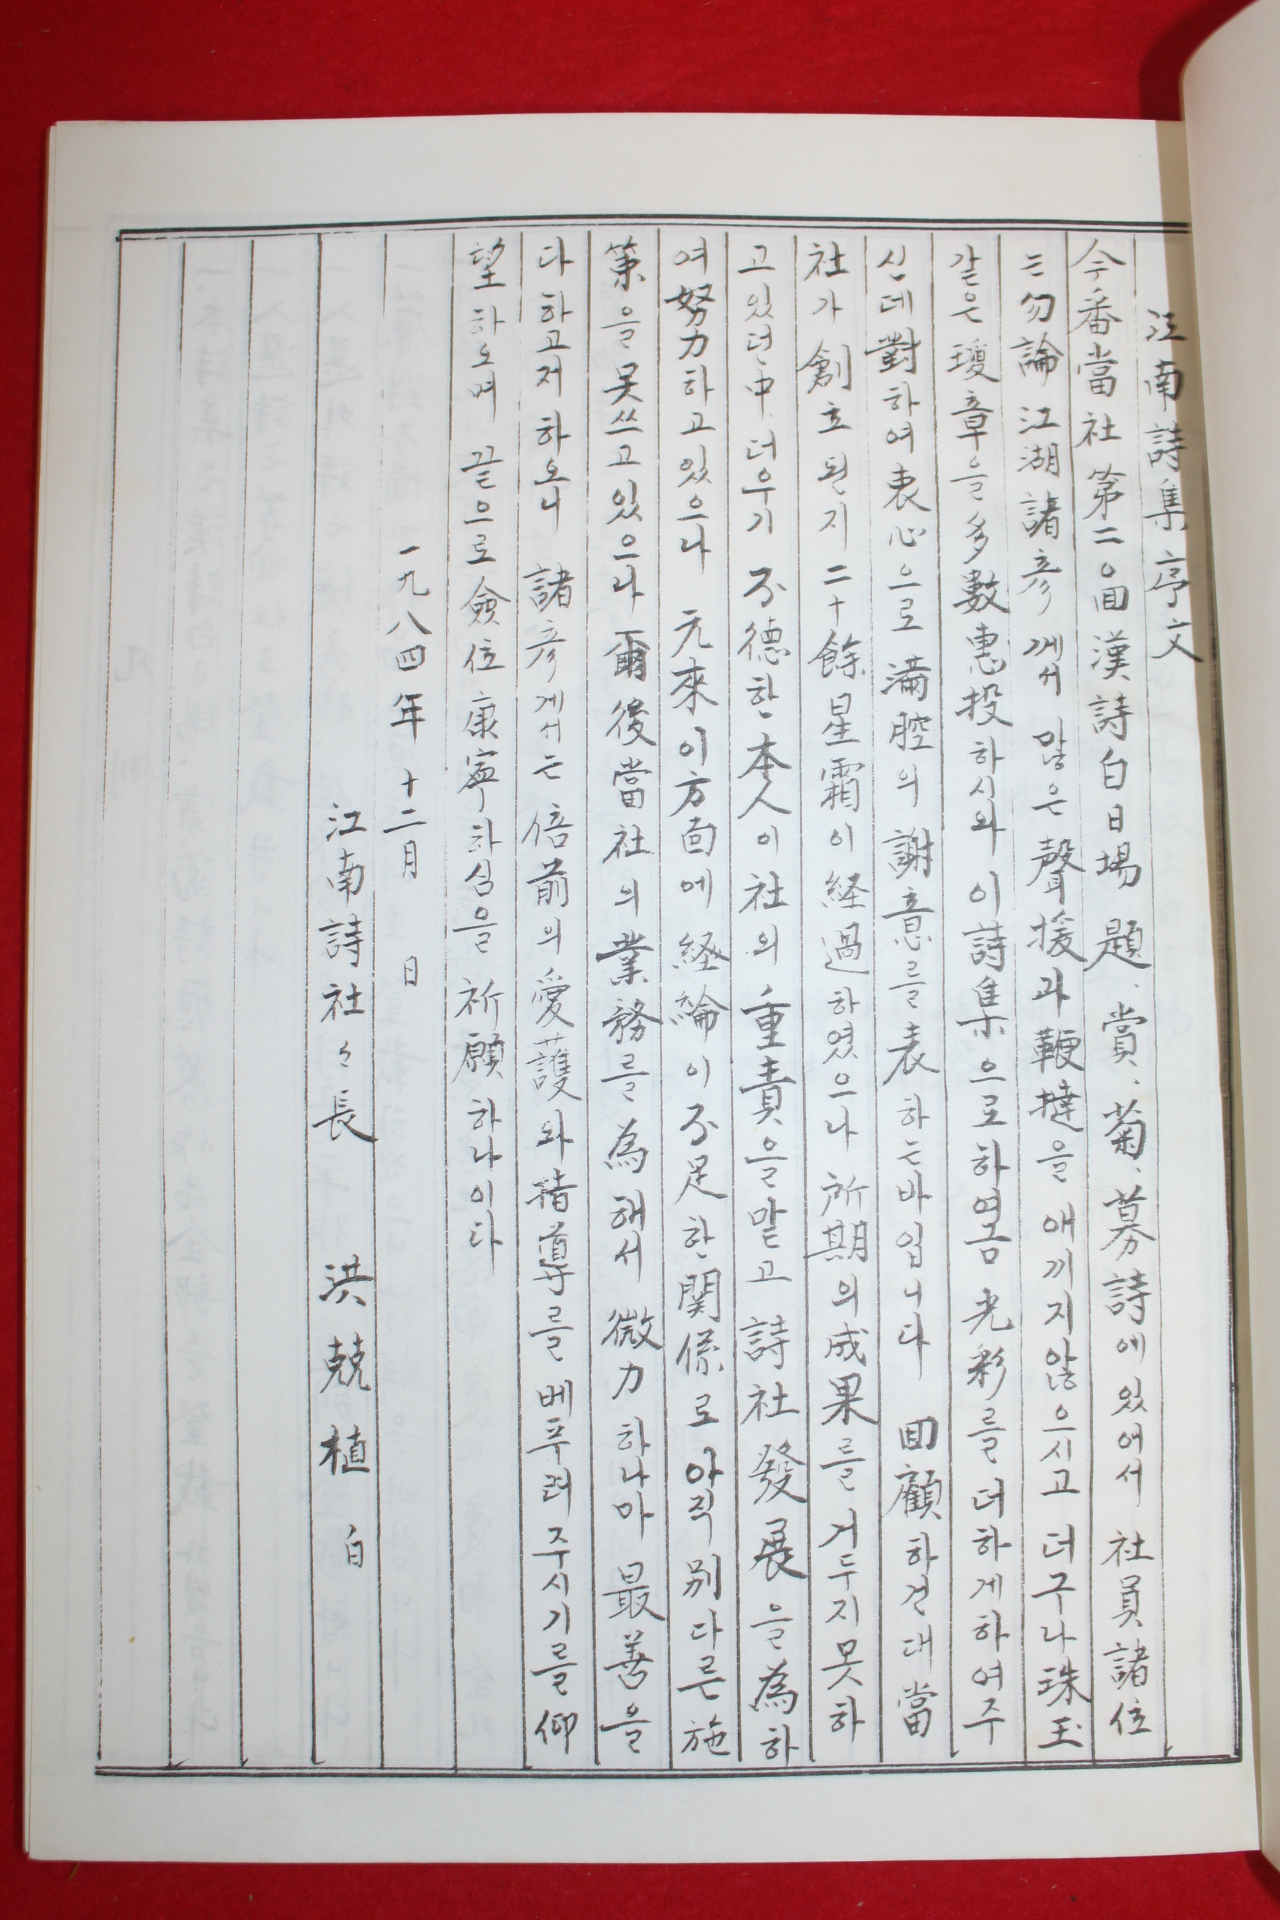 江南詩集序文
今番當社 第二回漢詩白日場 題, 賞, 菊, 募詩에있어서 社員諸位
는勿論 江湖諸彦께서 많은聲援과鞭撻을 애끼지않으시고 더구나珠玉
같은瓊章을多數惠投하시와 이詩集으로하염금光彩를더하게하여주
심데對하여衷心으로滿腔의 謝意를表하는바입니다 回顧하견대當
社가創立된지二十餘星霜이経過하였으나 所期의成果를거두지못하
고있던中 더우기 不德한本人이社의重責을맡고詩社發展을為하
여努力하고있으나 元來이方面에経綸이不足한関係로아직別다른施
策을못쓰고있으나爾後當社의業務를為해서 微力하나마最善을
다하고저하오니 諸彦게서는倍前의愛護와指導를베푸려주시기를仰
望하오며 끝으로僉位康寧하심을祈願하나이다
一九八四年 十二月 日
江南詩社々長 洪兢植 白